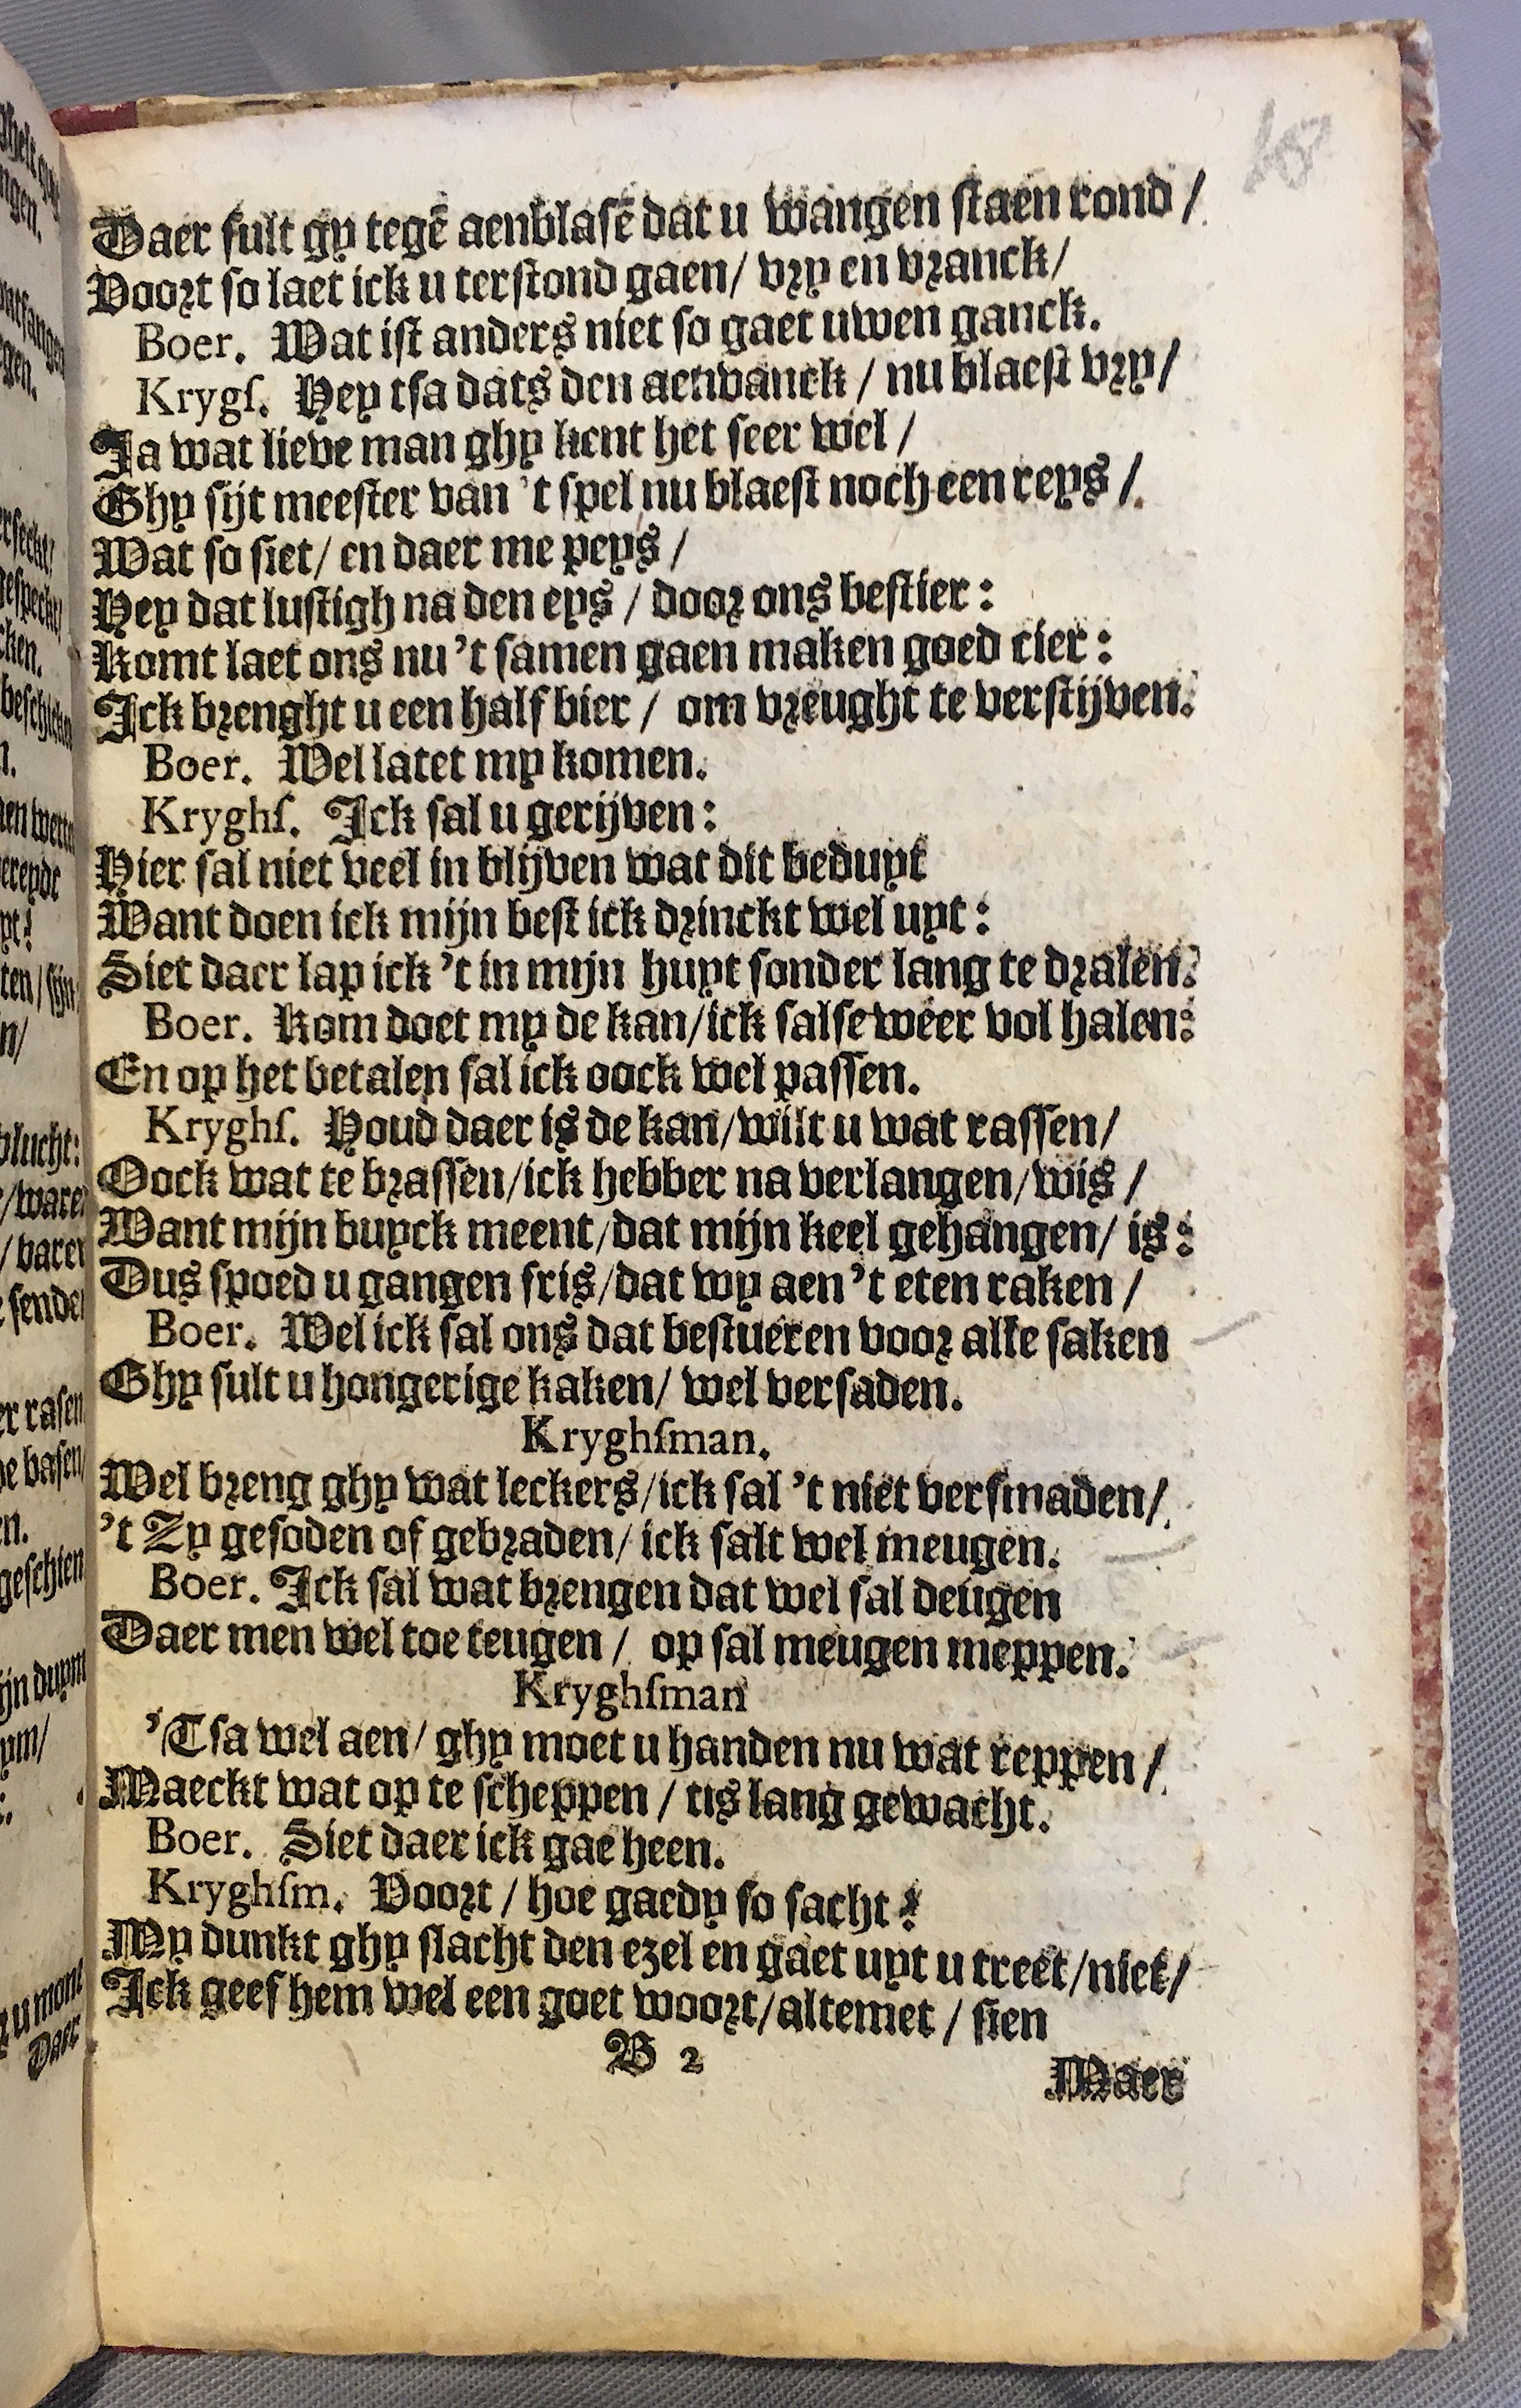 Daer sult gy tegē aenblasē dat u wangen staen rond /
Voort so laet ick u terstond gaen / vry en vranck /
Boer. Wat ist anders niet so gaet uwen ganck.
Krygs. Hey tsa dats den aenvanck / nu blaest vry /
Ja wat lieve man ghy kent het seer wel /
Ghy sijt meester van 't spel nu blaest noch een reys /
Wat so siet / en daer me peys /
Hey dat lustigh na den eys / door ons bestier :
Komt laet ons nu 't samen gaen maken goed cier :
Ick brenght u een half bier / om vreught te verstijven.
Boer. Wel latet my komen.
Kryghs. Ick sal u gerijven :
Hier sal niet veel in blijven wat dit beduyt
Want doen ick mijn best ick drinckt wel uyt :
Siet daer lap ick 't in mijn huyt sonder lang te dralen.
Boer. Kom doet my de kan / ick salse weer vol halen :
En op het betalen sal ick oock wel passen.
Kryghs. Houd daer is de kan / wilt u wat rassen /
Oock wat te brassen / ick hebber na verlangen / wis /
Want mijn buyck meent / dat mijn keel gehangen / is :
Dus spoed u gangen fris / dat wy aen 't eten raken /
Boer. Wel ick sal ons dat bestueren voor alle saken
Ghy sult u hongerige kaken / wel versaden.
Kryghsman.
Wel breng ghy wat leckers / ick sal 't niet versmaden /
't Zy gesoden of gebraden / ick salt wel meugen.
Boer. Ick sal wat brengen dat wel sal deugen
Daer men wel toe teugen / op sal meugen meppen.
Kryghsman
'Tsa wel aen / ghy moet u handen nu wat reppen /
Maeckt wat op te scheppen / tis lang gewacht.
Boer. Siet daer ick gae heen.
Kryghsm. Voort / hoe gaedy so sacht !
My dunkt ghy slacht den ezel en gaet uyt u treet / niet /
Ick geef hem wel een goet woort / altemet / sien
B 2
Maer